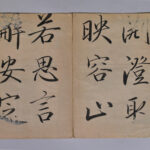 淵澄取
映容止
若思言
辭安定